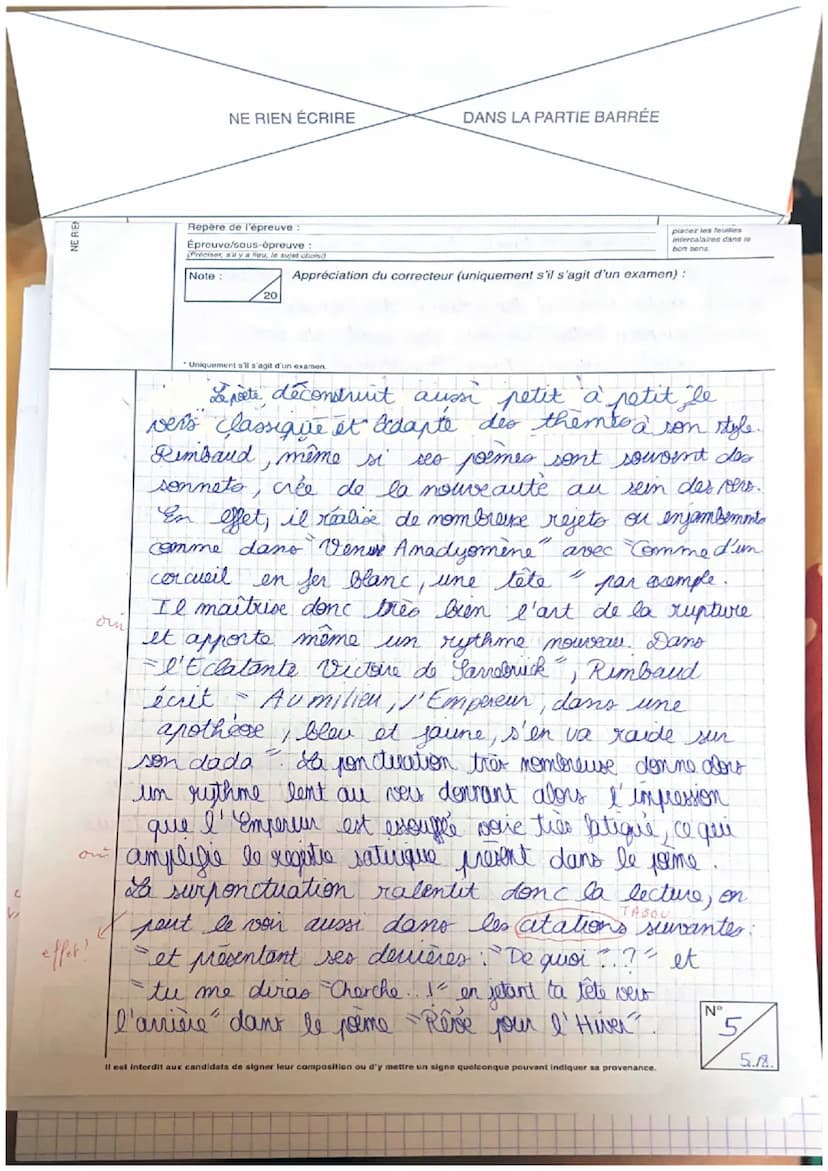 NE RIEN ÉCRIRE DANS LA PARTIE BARRÉE
NE RIEN
Repère de l'épreuve :
Épreuve/sous-épreuve :
(Préciser, s'il y a lieu, le sujet choisi)
placez les feuilles
intercalaires dans le
bon sens.
Note :
20
Appréciation du correcteur (uniquement s'il s'agit d'un examen) :
* Uniquement s'il s'agit d'un examen.
Le poète déconstruit aussi petit à petit le
vers classique et adapte des thèmes à son style.
Rimbaud, même si ses poèmes sont souvent des
sonnets, crée de la nouveauté au sein des vers.
En effet, il réalise de nombreux rejets ou enjambements
comme dans "Venus Anadyomène" avec "Comme d'un
cercueil en fer blanc, une tête" par exemple.
Il maîtrise donc très bien l'art de la rupture
oui
et apporte même un rythme nouveau. Dans
"l'Eclatante Victoire de Sarrebrück", Rimbaud
écrit "Au milieu, l'Empereur, dans une
apothéose, bleu et jaune, s'en va raide sur
son dada". La ponctuation très nombreuse donne alors
un rythme lent au vers donnant alors l'impression
que l'Empereur est essoufflé voire très fatigué, ce qui
oui
amplifie le registre satirique présent dans le poème.
La surponctuation ralentit donc la lecture, on
peut le voir aussi dans les citations suivantes :
effet ?
"et présentant ses derrières : "De quoi ?..?" et
"tu me diras "Cherche..!" en jetant ta tête vers
l'arrière" dans le poème "Rêvé pour l'Hiver".
N°
5
Il est interdit aux candidats de signer leur composition ou d'y mettre un signe quelconque pouvant indiquer sa provenance.